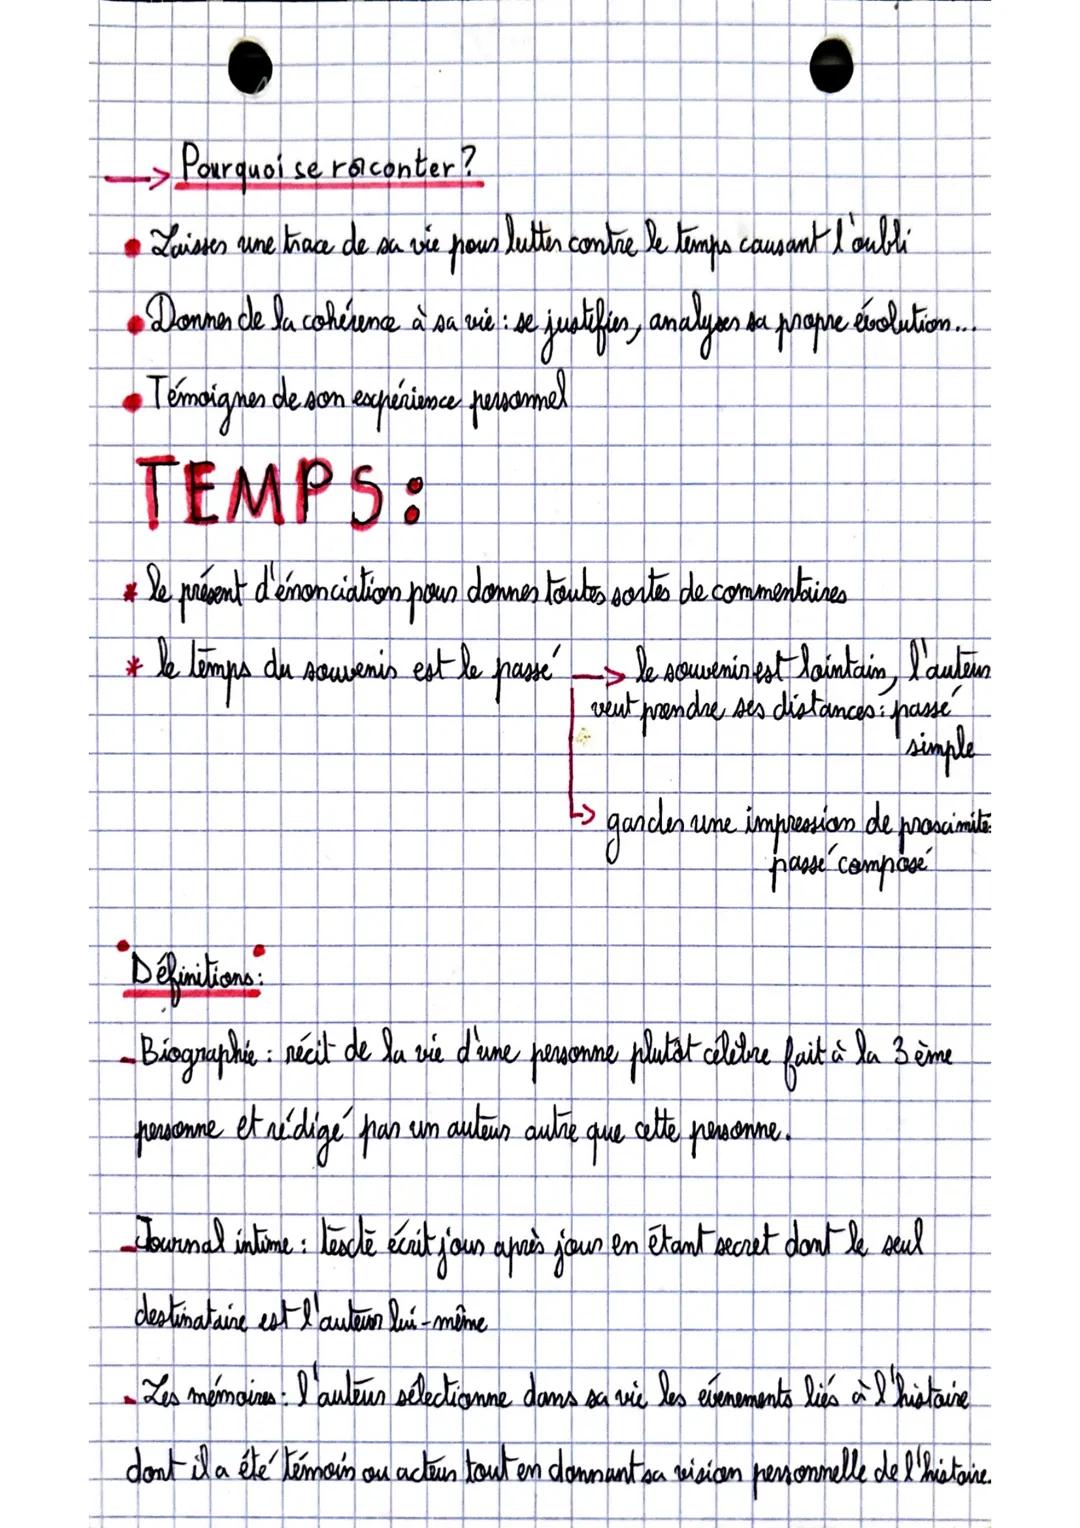 Pourquoi se raconter ?
Laisser une trace de sa vie pour lutter contre le temps causant l'oubli
Donner de la cohérence à sa vie : se justifier, analyser sa propre évolution...
Témoigner de son expérience personnel
TEMPS :
* le présent d'énonciation pour donner toutes sortes de commentaires
* le temps du souvenir est le passé → le souvenir est lointain, l'auteur
veut prendre ses distances : passé
simple
garder une impression de proximité:
passé composé
Définitions :
- Biographie : récit de la vie d'une personne plutôt célèbre fait à la 3 ème
personne et rédigé par un auteur autre que cette personne.
- Journal intime : texte écrit jour après jour en étant secret dont le seul
destinataire est l'auteur lui-même
- Les mémoires : l'auteur sélectionne dans sa vie les evénements liés à l'histoire
dont il a été témoin ou acteur tout en donnant sa vision personnelle de l'histoire.